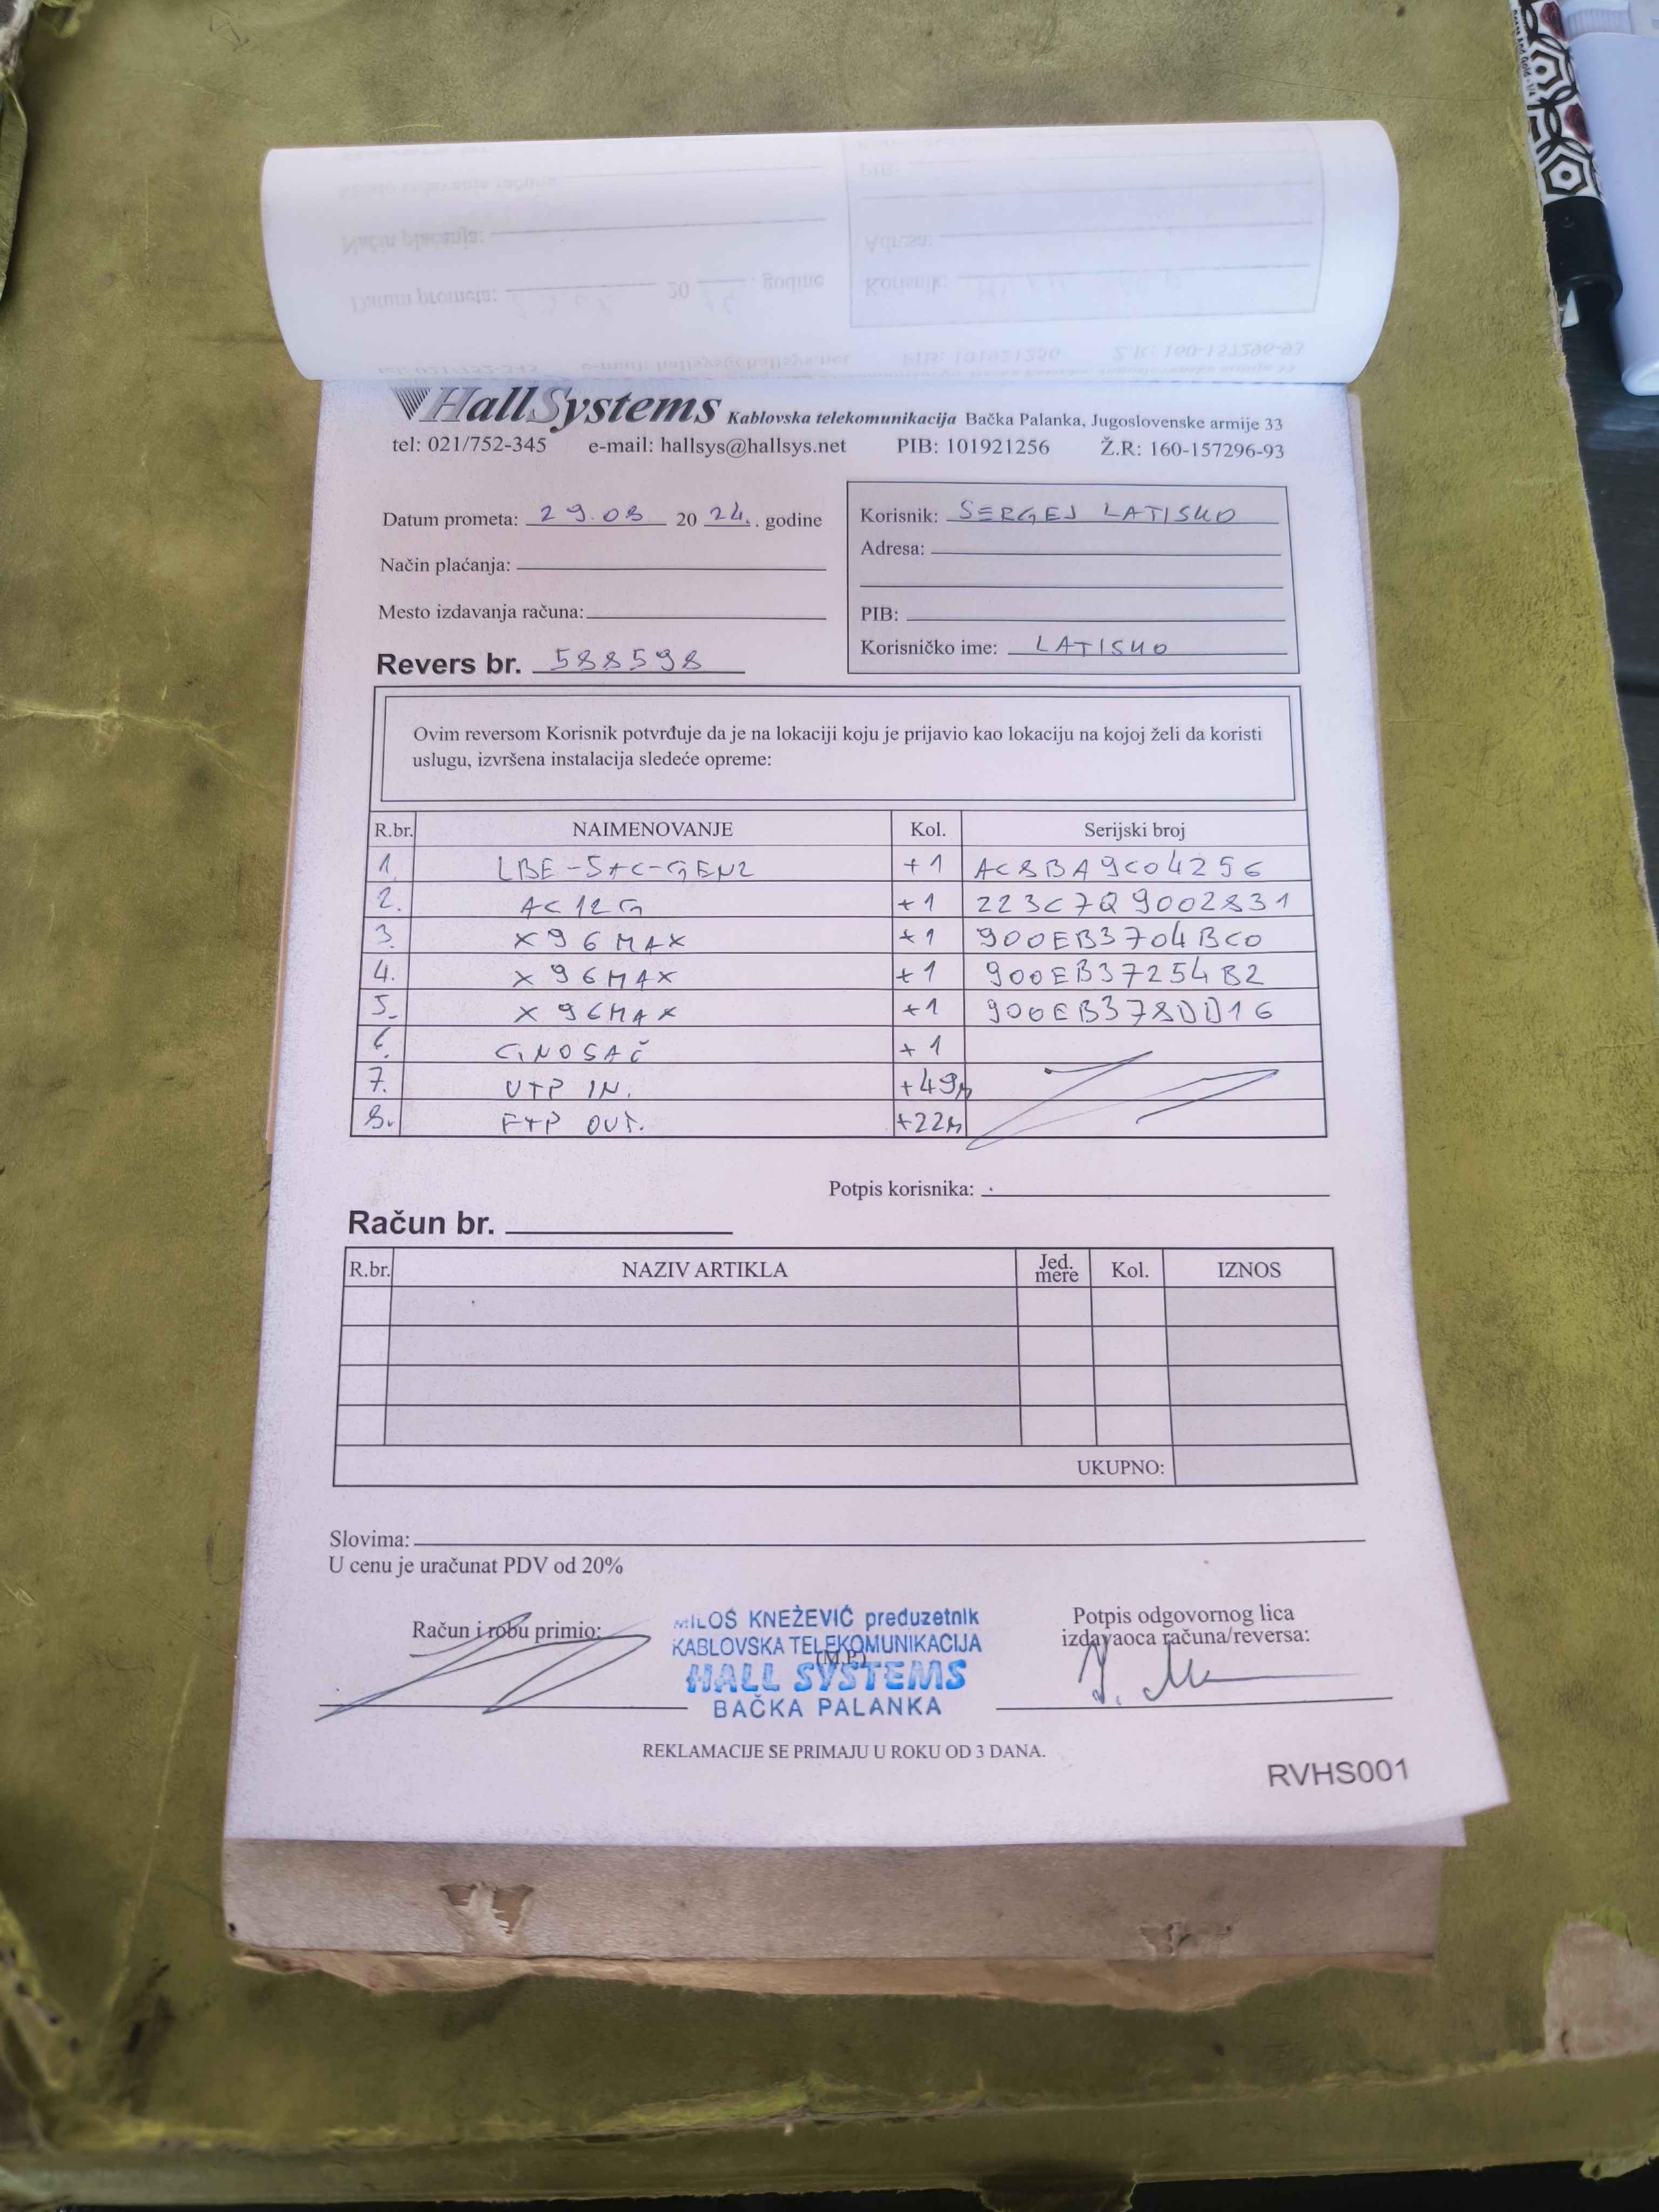 HallSystems Kablovska telekomunikacija Bačka Palanka, Jugoslovenske armije 33
tel: 021/752-345 e-mail: hallsys@hallsys.net PIB: 101921256 Ž.R: 160-157296-93
Datum prometa: 29.08 2024. godine
Način plaćanja:
Mesto izdavanja računa:
Revers br. 588598
Korisnik: SERGEJ LATISKO
Adresa:
PIB:
Korisničko ime: LATISKO
Ovim reversom Korisnik potvrđuje da je na lokaciji koju je prijavio kao lokaciju na kojoj želi da koristi
uslugu, izvršena instalacija sledeće opreme:
R.br. NAIMENOVANJE Kol. Serijski broj
1. LBE-5AC-GEN2 +1 AC8BA9C04256
2. AC12G +1 223C7Q9002831
3. X96MAX +1 900EB3704BC0
4. X96MAX +1 900EB37254B2
5. X96MAX +1 900EB378DD16
6. GNOSAČ +1
7. UTP IN. +49m
8. FTP OUT. +22m
Potpis korisnika:
Račun br.
R.br. NAZIV ARTIKLA Jed. mere Kol. IZNOS
UKUPNO:
Slovima:
U cenu je uračunat PDV od 20%
Račun i robu primio:
MILOŠ KNEŽEVIĆ preduzetnik
KABLOVSKA TELEKOMUNIKACIJA
(M.P.)
HALL SYSTEMS
BAČKA PALANKA
Potpis odgovornog lica
izdavaoca računa/reversa:
REKLAMACIJE SE PRIMAJU U ROKU OD 3 DANA.
RVHS001